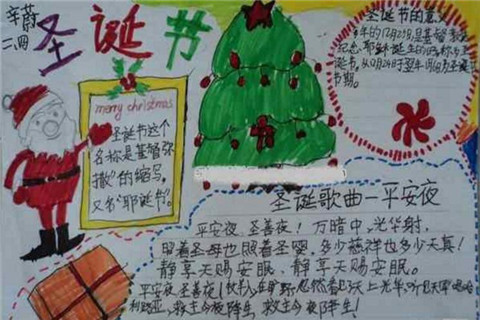 辛蔚
二.四
圣诞节
merry christmas
圣诞节这个
名称是基督弥
撒"的缩写,
又名"耶诞节"。
圣诞节的意义
年的12月25日,是基督
纪念耶稣诞生的日称为圣
诞节,从12月24日于翌年1月6日为圣诞
节期。
圣诞歌曲—平安夜
平安夜,圣善夜!万暗中,光华射,
照着圣母也照着圣婴,多少慈祥也多少天真!
静享天赐安眠,静享天赐安眠。
平安夜,圣善夜!牧羊人,在旷野,忽然看见天上光华,听见天军唱哈
利路亚,救主今夜降生,救主今夜降生!